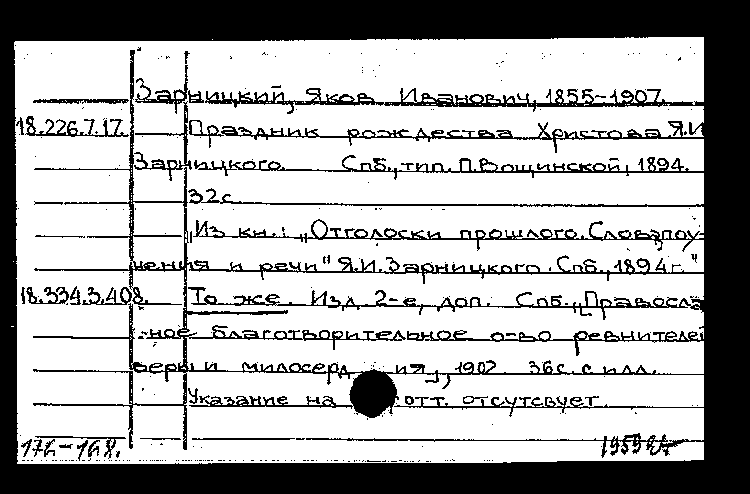 Зарницкий, Яков Иванович, 1855-1907.
18.226.7.17. Праздник рождества Христова Я.И
Зарницкого. Спб., тип. П.Вощинской, 1894.
32с.
"Из кн.: "Отголоски прошлого. Слова, поу-
чения и речи" Я.И.Зарницкого. Спб., 1894г."
18.334.3.408. То же. Изд. 2-е, доп. Спб., [Правосла
-ное благотворительное о-во ревнителей
веры и милосерд ия], 1902. 36с. с илл.
Указание на отт. отсутсвует.